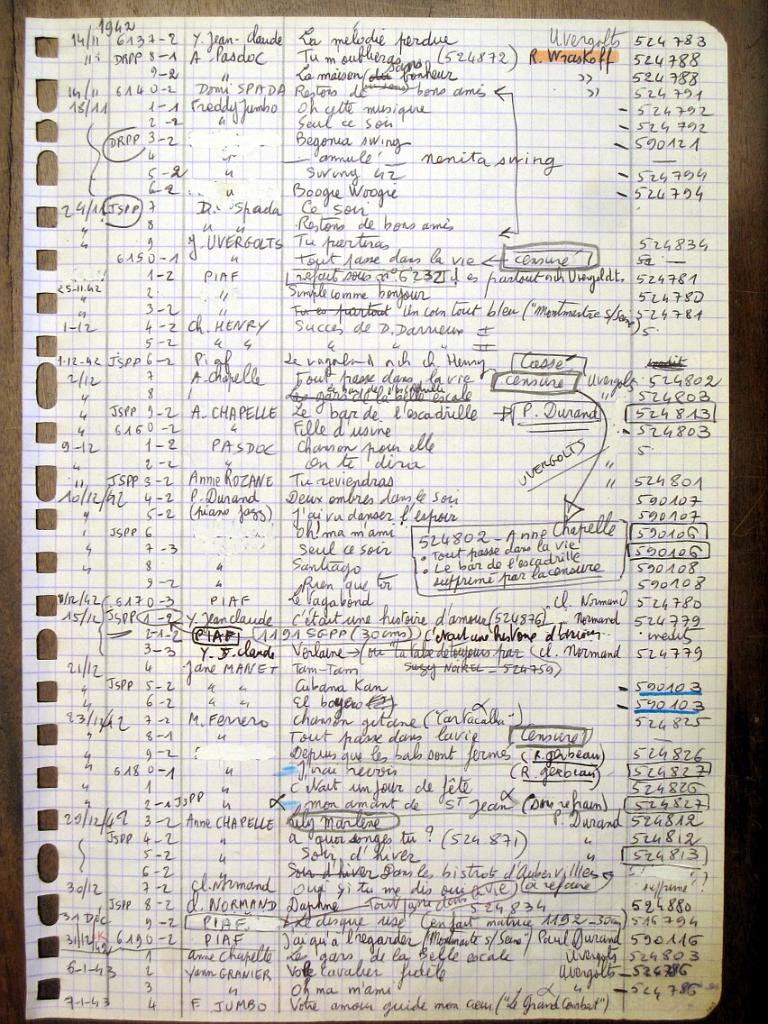 1942
14/11 6137-2 Y. Jean-Claude La mélodie perdue Uvergolts 524 783
DRPP 8-1 A. Pasdoc Tu m'oublieras (524872) R. Wraskoff 524788
9-2 " La maison sans bonheur " 524 788
14/11 6140-2 Domi SPADA Restons de bons amis " 524791
18/11 1-1 Freddy Jumbo Oh cette musique - 524792
2-2 " Seul ce soir - 524 792
DRPP 3-2 Begonia swing - 590121
4 " annulé nenita swing —
5-2 " Swing 42 - 524794
6-2 " Boogie Woogie - 524794
24/11 JSPP 7 D. Spada Ce soir
" 8 " " Restons de bons amis
" 9 Y. UVERGOLTS Tu partiras 524834
6150-1 " Tout passe dans la vie censuré
1-2 PIAF refait sous n° 6232 tu es partout orch Uvergoldt. 524781
25-11-42 2 " Simple comme bonjour 524780
" 3-2 " Tu es partout Un coin tout bleu ("Montmartre s/Seine) 524781
1-12 4-2 Ch. HENRY Succès de D. Darrieux I 5
5-2 " " " " II
1-12-42 JSPP 6-2 Piaf Le vagabond orch ch Henry Cassé
2/12 7 A. Chapelle Tout passe dans la vie censuré Uvergolts 524802
" 8 Les gars de la belle escale " 524803
JSPP 9-2 A. CHAPELLE Le bar de l'escadrille P. Durand 524813
" 6160-2 " Fille d'usine - 524803
9-12 1-2 PASDOC Chanson pour elle 5
2-2 " On te dira UVERGOLTS
" JSPP 3-2 Annie ROZANE Tu reviendras 524801
10/12/42 4-2 P. Durand Deux ombres dans le soir 590107
" 5-2 (piano jazz) J'ai vu danser l'espoir 590107
" JSPP 6 Oh! ma m'ami 590106
" 7-3 Seul ce soir 590106
" 8 " Santiago 590108
" 9-2 " Rien que toi 590108
524802 - Anne Chapelle
• Tout passe dans la vie
• Le bar de l'escadrille
supprimé par la censure
6170-3 PIAF Le Vagabond Cl. Normand 524780
15/12/42 JSPP 1-2 Y. Jean Claude C'était une histoire d'amour (524876) Normand 524779
" 2-1-2 PIAF 1191 SGPP (30cms) C'était une histoire d'amour inédit
3-3 Y. J. Claude Verlaine → (Cl. Normand 524779
21/12 4 Jane MANET Tam-Tam Suzy Noirel - 524759)
" JSPP 5-2 " " Cubana Kan - 590103
" 6-2 " " El boyero - 590103
23/12/42 7-2 M. Ferrero chanson gitane ("Cartacalha") 524825
" 8-1 " Tout passe dans la vie Censuré
" 9-2 " Depuis que les bals sont fermés (R. gerbeau) 524826
" 6180-1 " J'irai revoir (R. gerbeau) 524827
" 1 " C'était un jour de fête 524826
" 2-1 JSPP " mon amant de St Jean (2 refrain) 524827
29/12/42 3-2 Anne CHAPELLE Lily Marlène P. Durand 524812
JSPP 4-2 " à quoi songes tu? (524871) " 524812
5-2 " Soir d'hiver " 524813
6-2 " Soir d'hiver Dans les bistrots d'Aubervilliers
30/12 7-2 Cl. Normand Oui si tu me dis oui (à refaire) supprimé?
JSPP 8-2 Cl. NORMAND Daphné 524834 524880
31 DEC 9-2 PIAF Le disque usé (en fait matrice 1192-30cm) 516794
31/12/42 6190-2 PIAF J'ai qu'à l'regarder (Montmartre s/Seine) Paul Durand 590116
1 Anne Chapelle Les gars de la belle escale Uvergolts 524803
5-1-43 2 Yann GRANIER Votre cavalier fidèle Uvergolts - 524786
" 3 " Oh ma m'ami " - 524786
7-1-43 4 F. JUMBO Votre amour guide mon cœur ("Le Grand Combat")